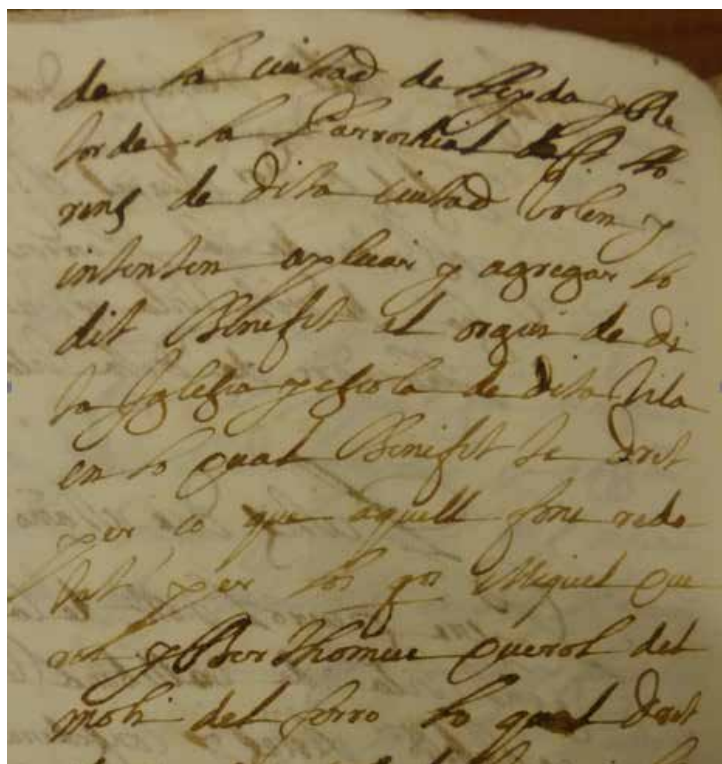 de la ciutad de lleyda y Re
tor de la Parrochial de St. llo
rens de dita ciutad volen y
intenten aplicar y agregar lo
dit Benefit al orgui de di
ta Iglesia y escola de dita Vila
en lo qual Benifit te dret
per co que aquell fonc redo
tat per los qqs Miquel Que
rol y Berthomeu Querol del
moli del ferro lo qual dret